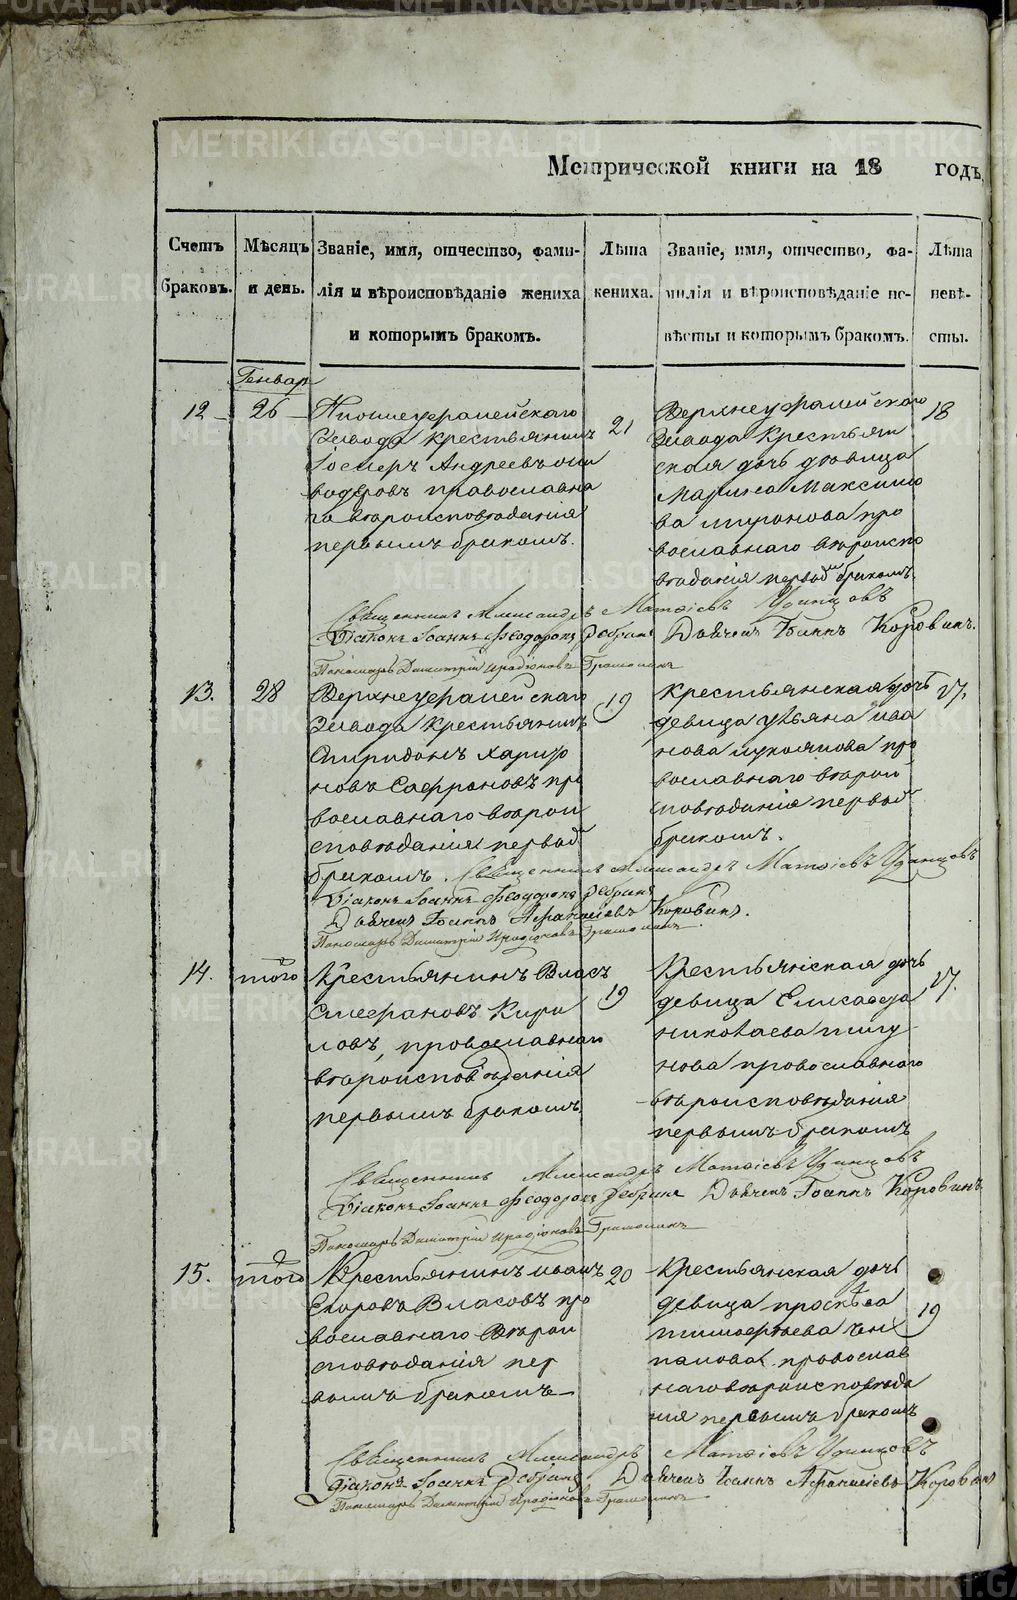 METRIKI.GASO-URAL.RU
Метрической книги на 18 годъ,
Счетъ браковъ.
Мѣсяцъ и день.
Званіе, имя, отчество, фами-
лія и вѣроисповѣданіе жениха
и которымъ бракомъ.
Лѣта кениха.
Званіе, имя, отчество, фа-
милія и вѣроисповѣданіе не-
вѣсты и которымъ бракомъ.
Лѣта невѣ-
сты.
Генвар
12 26
Нижнеуфалейскаго
Завода крестьянинъ
Андреевъ
православна
го вѣроисповѣданія
первымъ бракомъ.
21
Верхнеуфалейскаго
Завода Крестьян
ская дочь дѣвица
Марина Максимо
ва миронова пра
вославнаго вѣроиспо
вѣданія первымъ бракомъ.
18
Священникъ Александръ Матѳіевъ Удинцовъ
Діаконъ Іоаннъ Ѳеодоровъ Дьячекъ Іоаннъ Коровинъ.
Пономарь Димитрій
13. 28
Верхнеуфалейскаго
Завода Крестьянинъ
Спиридонъ Харито
новъ Сафроновъ пра
вославнаго вѣрои
сповѣданія первы
бракомъ.
19
крестьянская дочь
девица Ульяна ива
нова лукоянова пра
вославнаго вѣрои
сповѣданія первы
бракомъ.
17.
Священникъ Александръ Матѳіевъ Удинцовъ
Діаконъ Іоаннъ Ѳеодоровъ
Дьячекъ Іоаннъ Афанасіевъ Коровинъ.
Пономарь Димитрій
14. того
Крестьянинъ Власъ
Стефановъ Кири
ловъ, православнаго
вѣроисповѣданія
первымъ бракомъ
19
Крестьянская дочь
девица Елисавета
николаева пигу
нова православнаго
вѣроисповѣданія
первымъ бракомъ
17.
Священникъ Александръ Матѳіевъ Удинцовъ
Діаконъ Іоаннъ Ѳеодоровъ Дьячекъ Іоаннъ Коровинъ
Пономарь Димитрій
15. того
Крестьянинъ иванъ
Егоровъ Власовъ пра
вославнаго вѣрои
сповѣданія пер
вымъ бракомъ
20
Крестьянская дочь
девица
тимофеева
православ
наго вѣроисповѣда
нія первымъ бракомъ
19
Священникъ Александръ Матѳіевъ Удинцовъ
Діаконъ Іоаннъ Дьячекъ Іоаннъ Афанасіевъ Коровинъ
Пономарь Димитрій